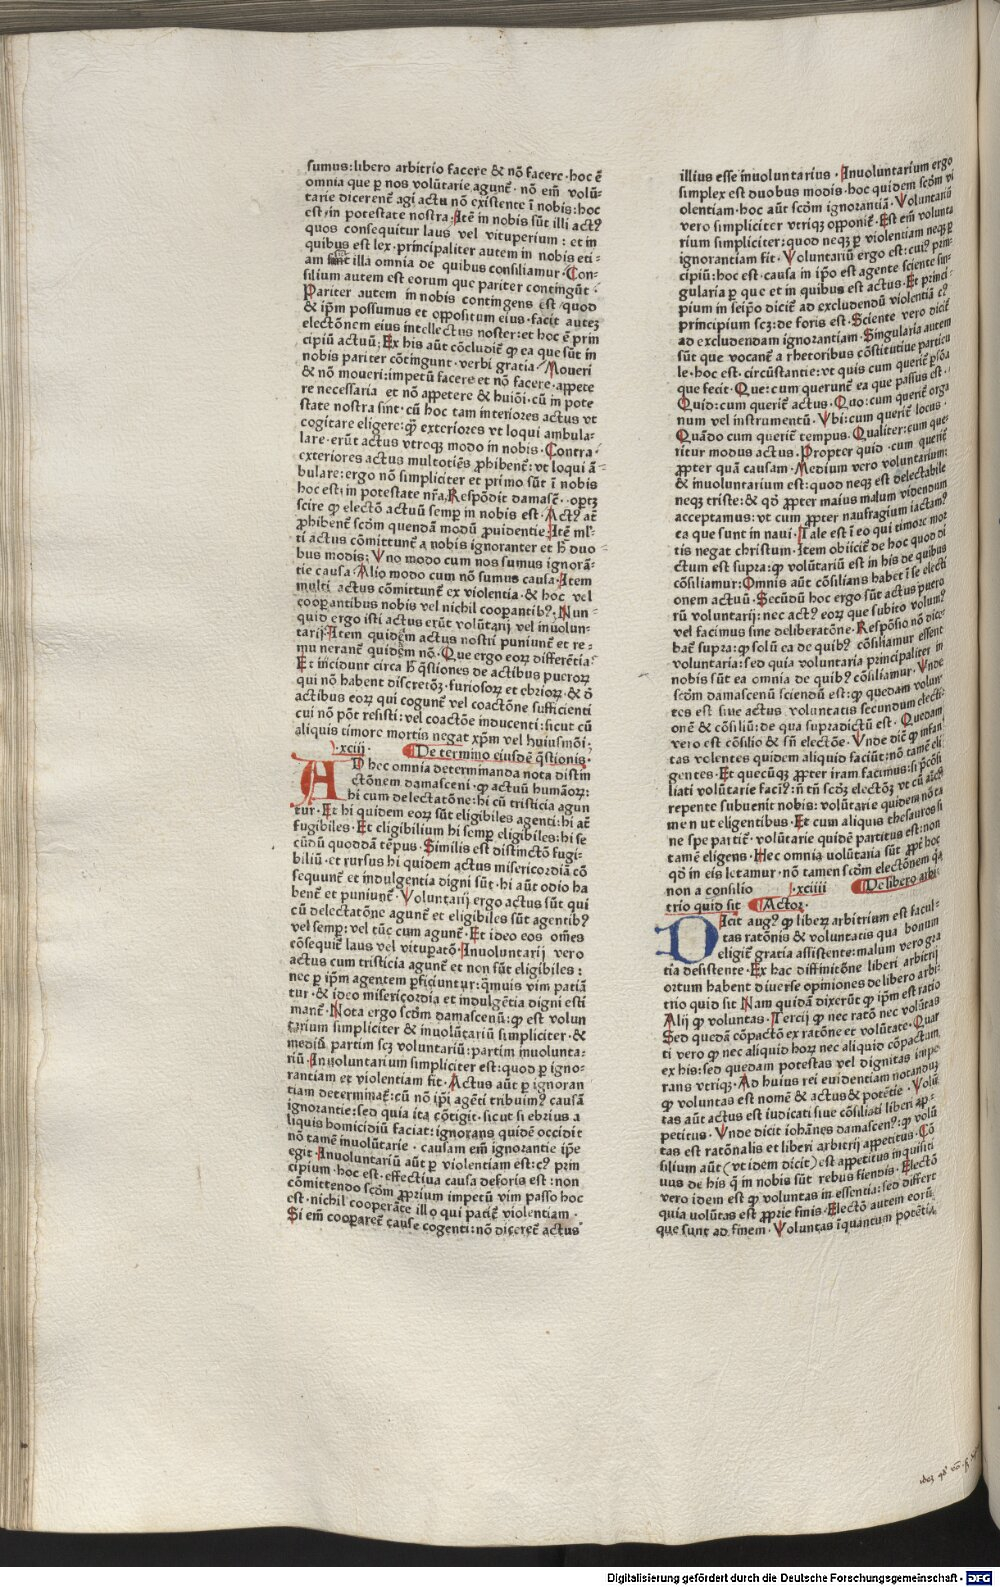 sumus:libero arbitrio facere & nõ facere·hoc ē
omnia que ꝑ nos volũtarie agunt̃· nõ em̃ volũ-
tarie dicerent̃ agi actu nõ existente ĩ nobis:hoc
est/in potestate nostra·Itē in nobis sũt illi actꝰ
quos consequitur laus vel vituperium: et in
quibus est lex·principaliter autem in nobis eti-
am sunt illa omnia de quibus consiliamur·Con-
silium autem est eorum que pariter contingũt·
Pariter autem in nobis contingens est quod
& ip̃m possumus et oppositum eius·facit autez
electõnem eius intellectus noster:et hoc ē prin
cipiũ actuũ:Ex his aũt cõcludit̃ ꝙ ea que sũt in
nobis pariter cõtingunt·verbi gratia·Moueri
& nõ moueri:impetũ facere et nõ facere·appete
re necessaria et nõ appetere & huiõi·cũ in pote
state nostra sint·cũ hoc tam interiores actus vt
cogitare eligere:ꝙ̃ exteriores vt loqui ambula-
lare·erũt actus vtroqꝫ modo in nobis·Contra·
exteriores actus multotiẽs ꝓhibent̃:vt loqui ã-
bulare:ergo nõ simpliciter et primo sũt ĩ nobis
hoc est:in potestate nr̃a·Respõdit damasc̃··optꝫ
scire ꝙ electõ actuũ semꝑ in nobis est·Actꝰ at̃
ꝓhibent̃ scõm quendã modũ ꝓuidentie·Itē ml̃-
ti actus cõmittunt̃ a nobis ignoranter et ɦ̃ duo-
bus modis:Vno modo cum nos sumus ignorã-
tie causa·Alio modo cum nõ sumus causa·Item
multi actus cõmittunt̃ ex violentia·& hoc vel
cooꝑantibus nobis vel nichil cooꝑantibꝰ·Nun-
quid ergo isti actus erũt volũtarij vel inuolun-
tarij·Item quidem actus nostri puniunt̃ et re-
munerant̃ quidem nõ·Que ergo eorꝫ differẽtia?
Et incidunt circa ɦ̃ q̃stiones de actibus puerorꝫ
qui nõ habent discretõꝫ·furiosorꝫ et ebriorꝫ·& õ
actibus eorꝫ qui cogunt̃ vel coactõne sufficienti
cui nõ põt resisti:vel coactõe inducenti:sicut cũ
aliquis timore mortis negat xp̃m vel huiusmõi·
·xciij· De termino eiusdẽ q̃stionis·
AD hec omnia determinanda nota distin
ctõnem damasceni·ꝙ actuũ humãorꝫ:
hi cum delectatõne:hi cũ tristicia agun
tur·Et hi quidem eorꝫ sũt eligibiles agenti:hi at̃
fugibiles·Et eligibilium hi semꝑ eligibiles:hi se
cũdũ quoddã tẽpus·Similis est distinctõ fugi-
biliũ·et rursus hi quidem actus misericordiã cõ
sequunt̃ et indulgentia digni sũt·hi aũt odio ha
bent̃ et puniunt̃·Voluntarij ergo actus sũt qui
cũ delectatõne agunt̃ et eligibiles sũt agentibꝰ
vel semꝑ:vel tũc cum agunt̃·Et ideo eos om̃es
cõsequit̃ laus vel vituꝑatõ·Inuoluntarij vero
actus cum tristicia agunt̃ et non sũt eligibiles:
nec ꝑ ip̃m agentem ꝑficiuntur:q̃muis vim patiã
tur·& ideo misericordia et indulgẽtia digni esti
mant̃·Nota ergo scõm damascenũ:ꝙ est volun
tarium simpliciter & inuolũtariũ simpliciter·&
mediũ partim scꝫ voluntariũ:partim inuolunta-
riũ·Inuoluntarium simpliciter est:quod ꝑ igno-
rantiam et violentiam fit·Actus aũt ꝑ ignoran
tiam determinat̃:cũ nõ ip̃i agẽti tribuimꝰ causã
ignorantie:sed quia ita cõtigit·sicut si ebrius a
liquis homicidiũ faciat:ignorans quidẽ occidit
nõ tamẽ inuolũtarie· causam em̃ ignorantie ip̃e
egit·Inuoluntariũ aũt ꝑ violentiam est:cꝰ prin
cipium·hoc est·effectiua causa deforis est:non
cõmittendo scõm ꝓprium impetũ vim passo hoc
est·nichil cooꝑante illo qui patit̃ violentiam·
Si em̃ cooꝑaret̃ cause cogenti:nõ diceret̃ actus
illius esse inuoluntarius·Inuoluntarium ergo
simplex est duobus modis·hoc quidem scõm vi
olentiam·hoc aũt scõm ignorantiã·Voluntariũ
vero simpliciter vtriqꝫ opponit̃·Est em̃ volunta
rium simpliciter:quod neqꝫ ꝑ violentiam neqꝫ ꝑ
ignorantiam fit·Voluntariũ ergo est:cuiꝰ prin-
cipiũ:hoc est·causa in ip̃o est agente sciente sin-
gularia ꝑ que et in quibus est actus·Et princi-
pium in seip̃o dicit̃ ad excludendũ violentiã cꝰ
principium scꝫ:de foris est·Sciente vero dicit̃
ad excludendam ignorantiam·Singularia autem
sũt que vocant̃ a rhetoribus cõstitutiue particu
le·hoc est·circũstantie:vt quis cum querit̃ ꝑsõa
que fecit·Que:cum querunt̃ ea que passus est·
Quid:cum querit̃ actus·Quo:cum querit̃ orga
num vel instrumentũ·Vbi:cum querit̃ locus·
Quãdo cum querit̃ tempus·Qualiter:cum que-
ritur modus actus·Propter quid·cum querit̃
ꝓpter quã causam·Medium vero voluntarium
& inuoluntarium est:quod neqꝫ est delectabile
neqꝫ triste:& qõ ꝓpter maius malum videndum
acceptamus:vt cum ꝓpter naufragium iactamꝰ
ea que sunt in naui·Tale est ĩ eo qui timore mor
tis negat christum·Item obiicit̃ de hoc quod di
ctum est supra:ꝙ volũtariũ est in his de quibus
cõsiliamur:Omnis aũt cõsilians habet ĩ se electi
onem actuũ·Secũdũ hoc ergo sũt actus puero
rũ voluntarij:nec actꝰ eorꝫ que subito volumꝰ
vel facimus sine deliberatõne·Respõsio nõ dice-
bat̃ supra:ꝙ solũ ea de quibꝰ cõsiliamur essent
voluntaria:sed quia voluntaria principaliter in
nobis sũt ea omnia de quibꝰ cõsiliamur·Vnde
scõm damascenũ sciendũ est:ꝙ quedam volun-
tes est siue actus voluntatis secundum electi-
onẽ & cõsiliũ:de qua supradictũ est·Quedam
vero est cõsilio & sñ electõe·Vnde dic̃t ꝙ infan
tas volentes quidem aliquid faciũt:nõ tamẽ eli
gentes·Et quecũqꝫ ꝓpter iram facimus:si p̃cõsi
liati volũtarie facimꝰ:ñ tñ scõꝫ electõꝫ vt cũ amicꝰ
repente subuenit nobis:volũtarie quidem nõ ta
men ut eligentibus·Et cum aliquis thesauros si
ne spe partit̃·volũtarie quidẽ partitus est:non
tamẽ eligens·Hec omnia volũtaria sũt ꝓpt̃ hoc
qõ in eis letamur·nõ tamen scõm electõnem q̃a
non a consilio ·xciiii De libero arbi-
trio quid sit Actor·
DIcit augꝰ ꝙ liberꝫ arbitrium est facul-
tas ratõnis & voluntatis qua bonum
eligit̃ gratia assistente:malum vero gra
tia desistente·Ex hac diffinitõne liberi arbitrij
ortum habent diuerse opiniones de libero arbi-
trio quid sit Nam quidã dixerũt ꝙ ip̃m est ratio
Alij ꝙ voluntas·Tercij ꝙ nec ratõ nec volũtas
Sed quedã cõpactõ ex ratõne et volũtate·Quar
ti vero ꝙ nec aliquid horꝫ nec aliquid cõpactum
ex his:sed quedam potestas vel dignitas impe
rans vtriqꝫ·Ad huius rei euidentiam notanduꝫ
ꝙ voluntas est nomẽ & actus & potẽtie·Volũ
tas aũt actus est iudicati siue cõsiliati liberi ap-
petitus·Vnde dicit iohãnes damascenꝰ:ꝙ volũ
tas est ratõnalis et liberi arbitrij appetitus·Cõ
silium aũt (vt idem dicit) est appetitus inquisiti
uus de his q̃ in nobis sũt rebus fiendis·Electõ
vero idem est ꝙ voluntas in essentia:sed differt
quia volũtas est ꝓprie finis·Electõ autem eorũ
que sunt ad finem·Voluntas ĩquantum potẽtia
Digitalisierung gefördert durch die Deutsche Forschungsgemeinschaft · DFG